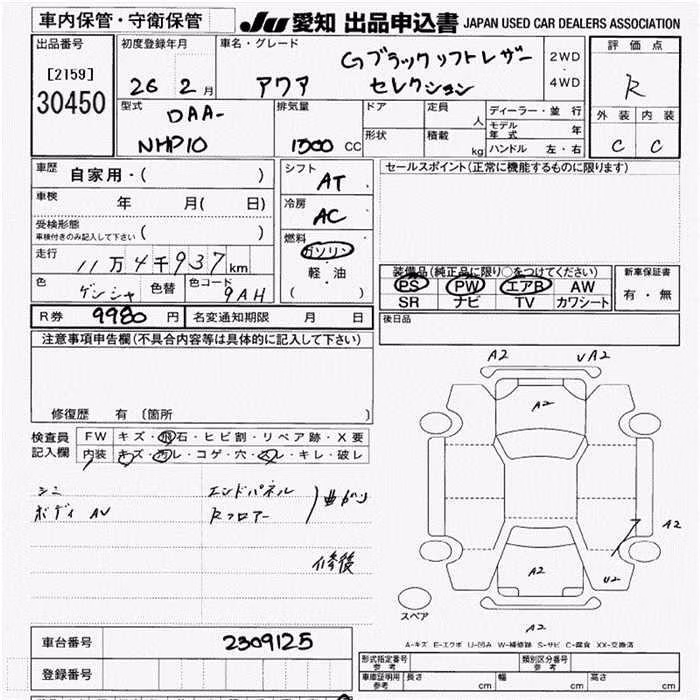 車内保管・守衛保管 JU 愛知 出品申込書 JAPAN USED CAR DEALERS ASSOCIATION
出品番号 初度登録年月 車名・グレード 評価点
[2159] Gブラックソフトレザー 2WD
30450 26 2月 アクア セレクション 4WD R
型式 DAA- 排気量 ドア 定員 人 ディーラー・並行 外装 内装
モデル年式 年
NHP10 1500 CC 形状 積載 kg ハンドル 左・右 C C
車歴 自家用・( ) シフト AT セールスポイント(正常に機能するものに限ります)
車検 年 月( 日) 冷房 AC
受検形態
車検付きのみ記入して下さい ( ) 燃料 ガソリン
走行 11万4千937km 軽・油 装備品(純正品に限り○をつけてください) 新車保証書
色 ゲンシャ 色替 色コード 9AH ( ) PS PW エアB AW 有・無
SR ナビ TV カワシート
R券 9980円 名変通知期限 月 日 後日品
注意事項申告欄(不具合内容等は具体的に記入して下さい)
A2 UA2
A2
修復歴 有 〔箇所 〕
検査員 FW キズ・飛石・ヒビ割・リペア跡・X要
記入欄 内装 キズ・汚レ・コゲ・穴・スレ・キレ・破レ
シミ エンドパネル 曲がり
ボディ AU Rフロアー
A2
修復
A2 U2
スペア
A2
A-キズ E-エクボ U-凹み W-補修跡 S-サビ C-腐食 XX-交換済
車台番号 2309125
形式指定番号 参考 類別区分番号 参考
登録番号 車庫証明用 参考 長さ cm 幅 cm 高さ cm